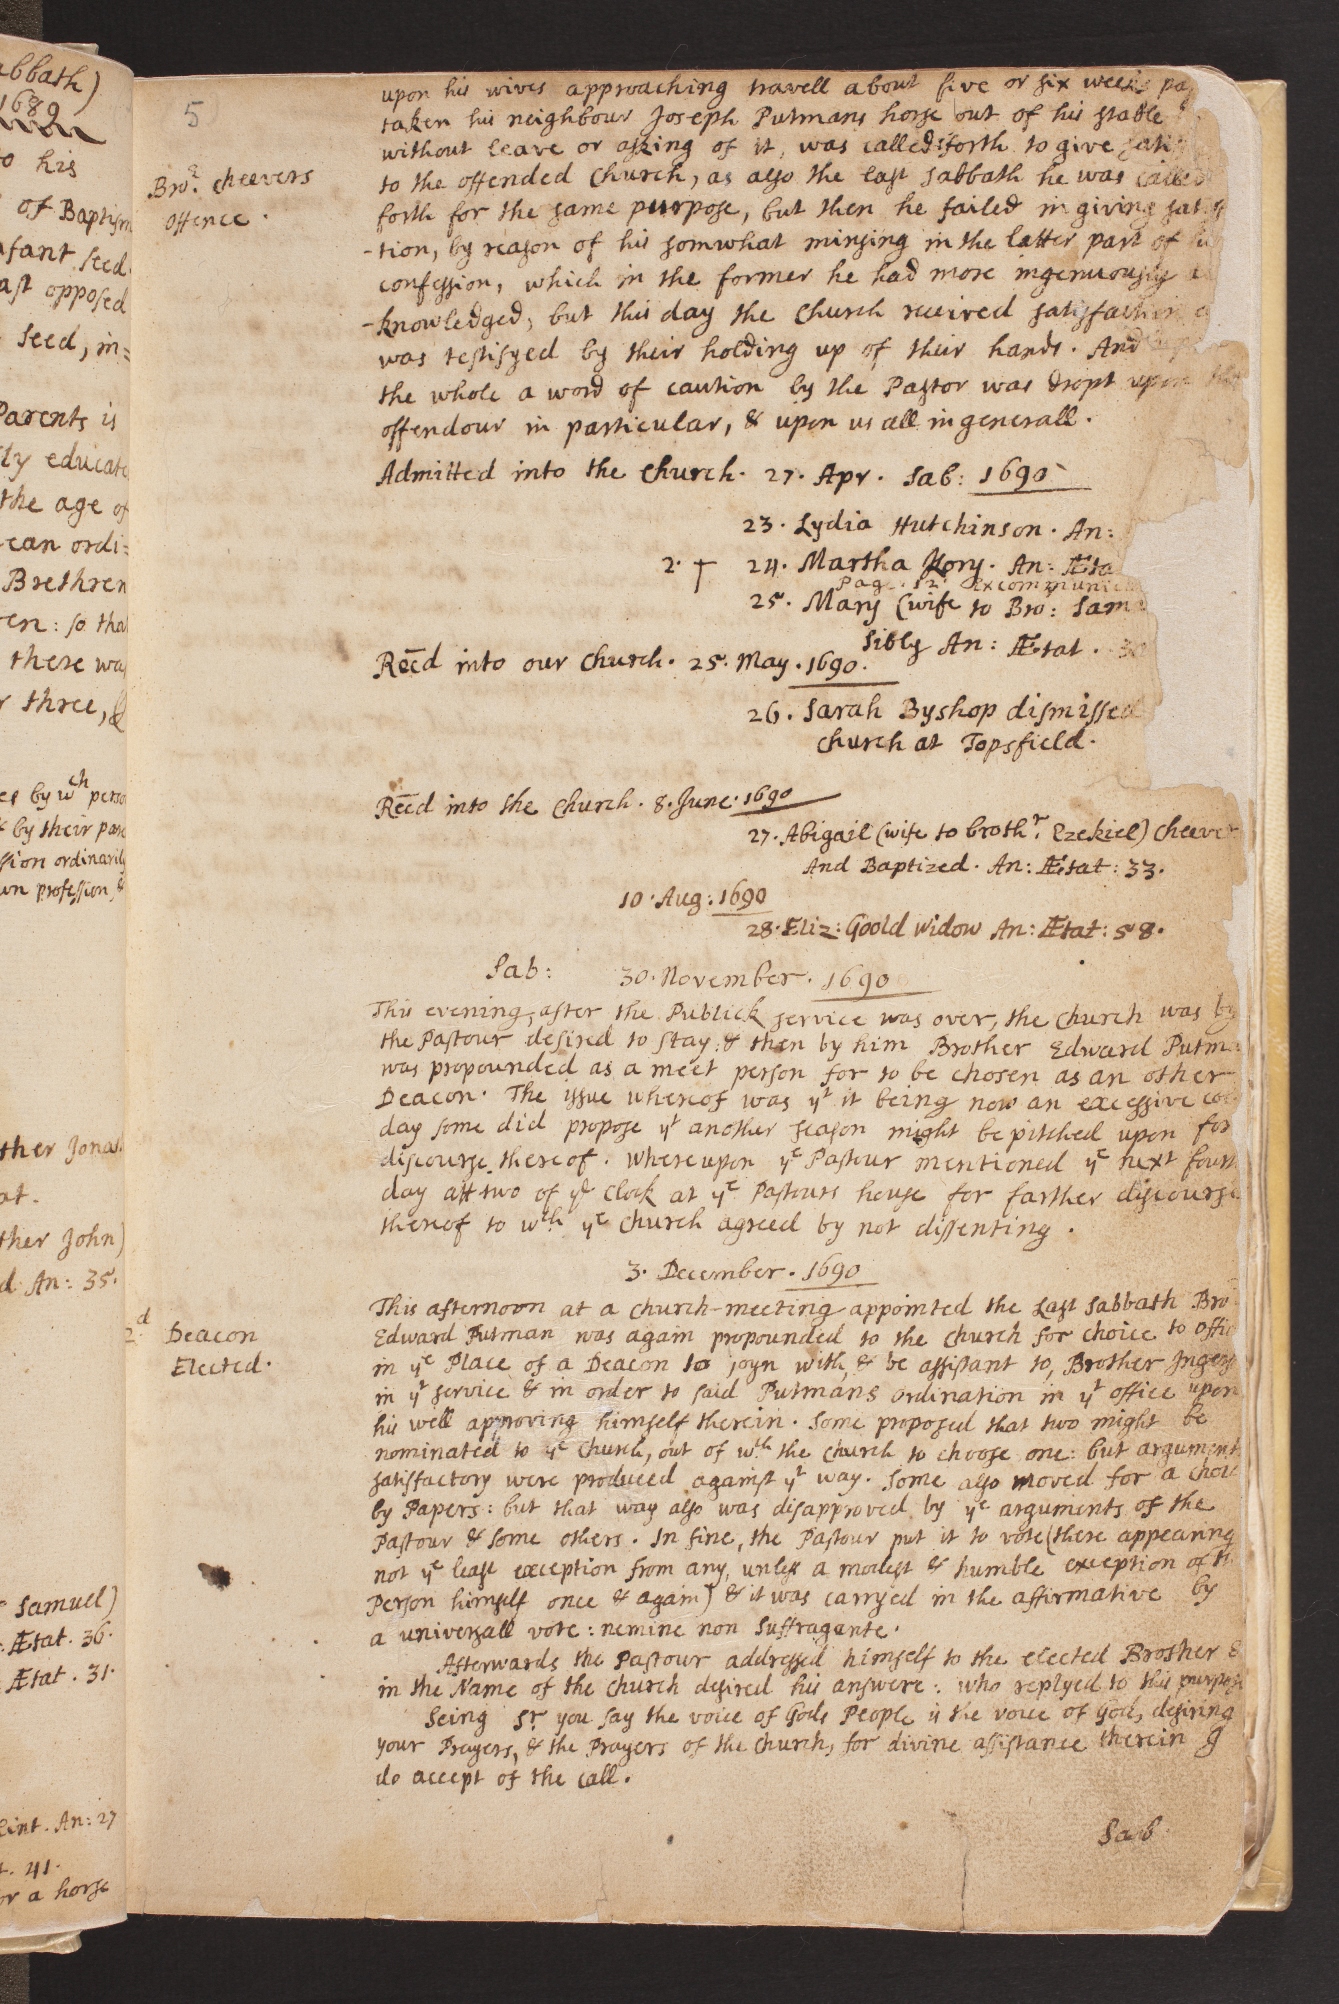 abbath)
1689
o his
of Baptism
nfant seed
ast opposed
seed, in=
Parents is
ly educate
the age of
can ordi=
Brethren
en: so that
there was
r three, &
es by wch person
& by their pare
ssion ordinarily
wn profession, &
ther Jonat
at.
ther John)
d An: 35.
r Samuel)
: Ætat. 36.
Ætat. 31.
lint. An: 27
t. 41.
or a horse
5
upon his wives approaching travell about five or six weeks pa
taken his neighbour Joseph Putmans horse out of his stable
without leave or asking of it, was called forth to give satis
Bror. Cheevers
offence.
to the offended Church, as also the last Sabbath he was called
forth for the same purpose, but then he failed in giving satisf
-tion, by reason of his somwhat minsing in the latter part of his
confession, which in the former he had more ingenuously
-knowledged, but this day the Church received satisfaction
was testifyed by their holding up of their hands. And
the whole a word of caution by the Pastor was dropt upon the
offendour in particular, & upon us all in generall.
Admitted into the Church. 27. Apr. Sab: 1690
23. Lydia Hutchinson. An:
2. † 24. Martha Kory. An: Æta
Pag. 12. Excommunic
25. Mary (wife to Bro: Sam
Sibly An: Ætat. 30
Recd into our Church. 25. May. 1690.
26. Sarah Byshop dismissed
Church at Topsfield.
Recd into the Church. 8. June. 1690
27. Abigail (wife to brothr. Ezekiel) Cheever
And Baptized. An: Ætat: 33.
10. Aug: 1690
28. Eliz: Goold Widow An: Ætat: 58.
Sab: 30. November. 1690
This evening, after the Publick service was over, the Church was by
the Pastour desired to stay, & then by him Brother Edward Putma
was propounded as a meet person for to be chosen as an other
Deacon. The issue whereof was yt it being now an excessive col
day some did propose yt another season might be pitched upon for
discourse thereof. Whereupon ye Pastour mentioned ye next fourth
day att two of ye clock at ye Pastours house for farther discourse
thereof to wch ye Church agreed by not dissenting.
3. December. 1690
This afternoon at a church-meeting appointed the last Sabbath Bro
2d. Deacon
Elected.
Edward Putman was again propounded to the Church for choice to offic
in ye Place of a Deacon to joyn with, & be assistant to, Brother Ingers
in yt service & in order to said Putmans ordination in yt office upon
his well approving himself therein. Some proposed that two might be
nominated to ye Church, out of wch the Church to choose one: but arguments
satisfactory were produced against yt way. Some also moved for a choic
by Papers: but that way also was disapproved by ye arguments of the
Pastour & some others. In fine, the Pastour put it to vote (there appearing
not ye least exception from any, unless a modest & humble exception of th
Person himself once & again) & it was carryed in the affirmative by
a universall vote: nemine non Suffragante.
Afterwards the Pastour addressed himself to the elected Brother &
in the Name of the Church desired his answere: who replyed to this purpose
Seing Sr. you say the voice of Gods People is the voice of God, desiring
your Prayers, & the Prayers of the Church, for divine assistance therein I
do accept of the call.
Sab